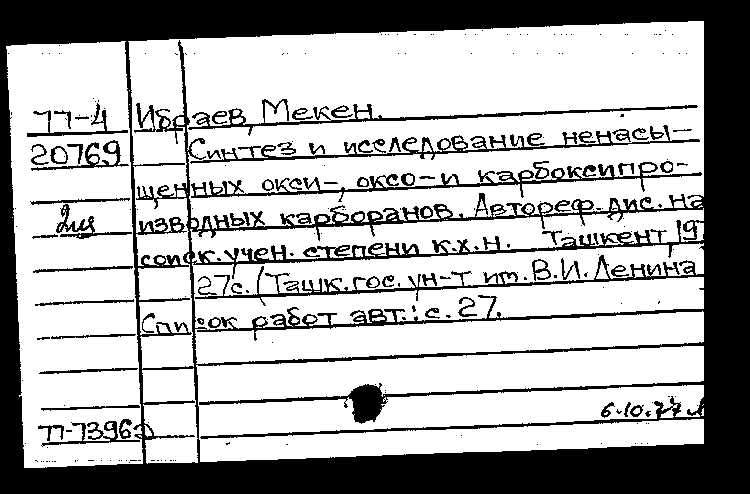 77-4 Ибраев, Мекен.
20769 Синтез и исследование ненасы-
щенных окси-, оксо- и карбоксипро-
изводных карборанов. Автореф. дис. на
соиск. учен. степени к.х.н. Ташкент, 19
27с. (Ташк. гос. ун-т им. В.И. Ленина
Список работ авт.: с. 27.
6.10.77
77-7396